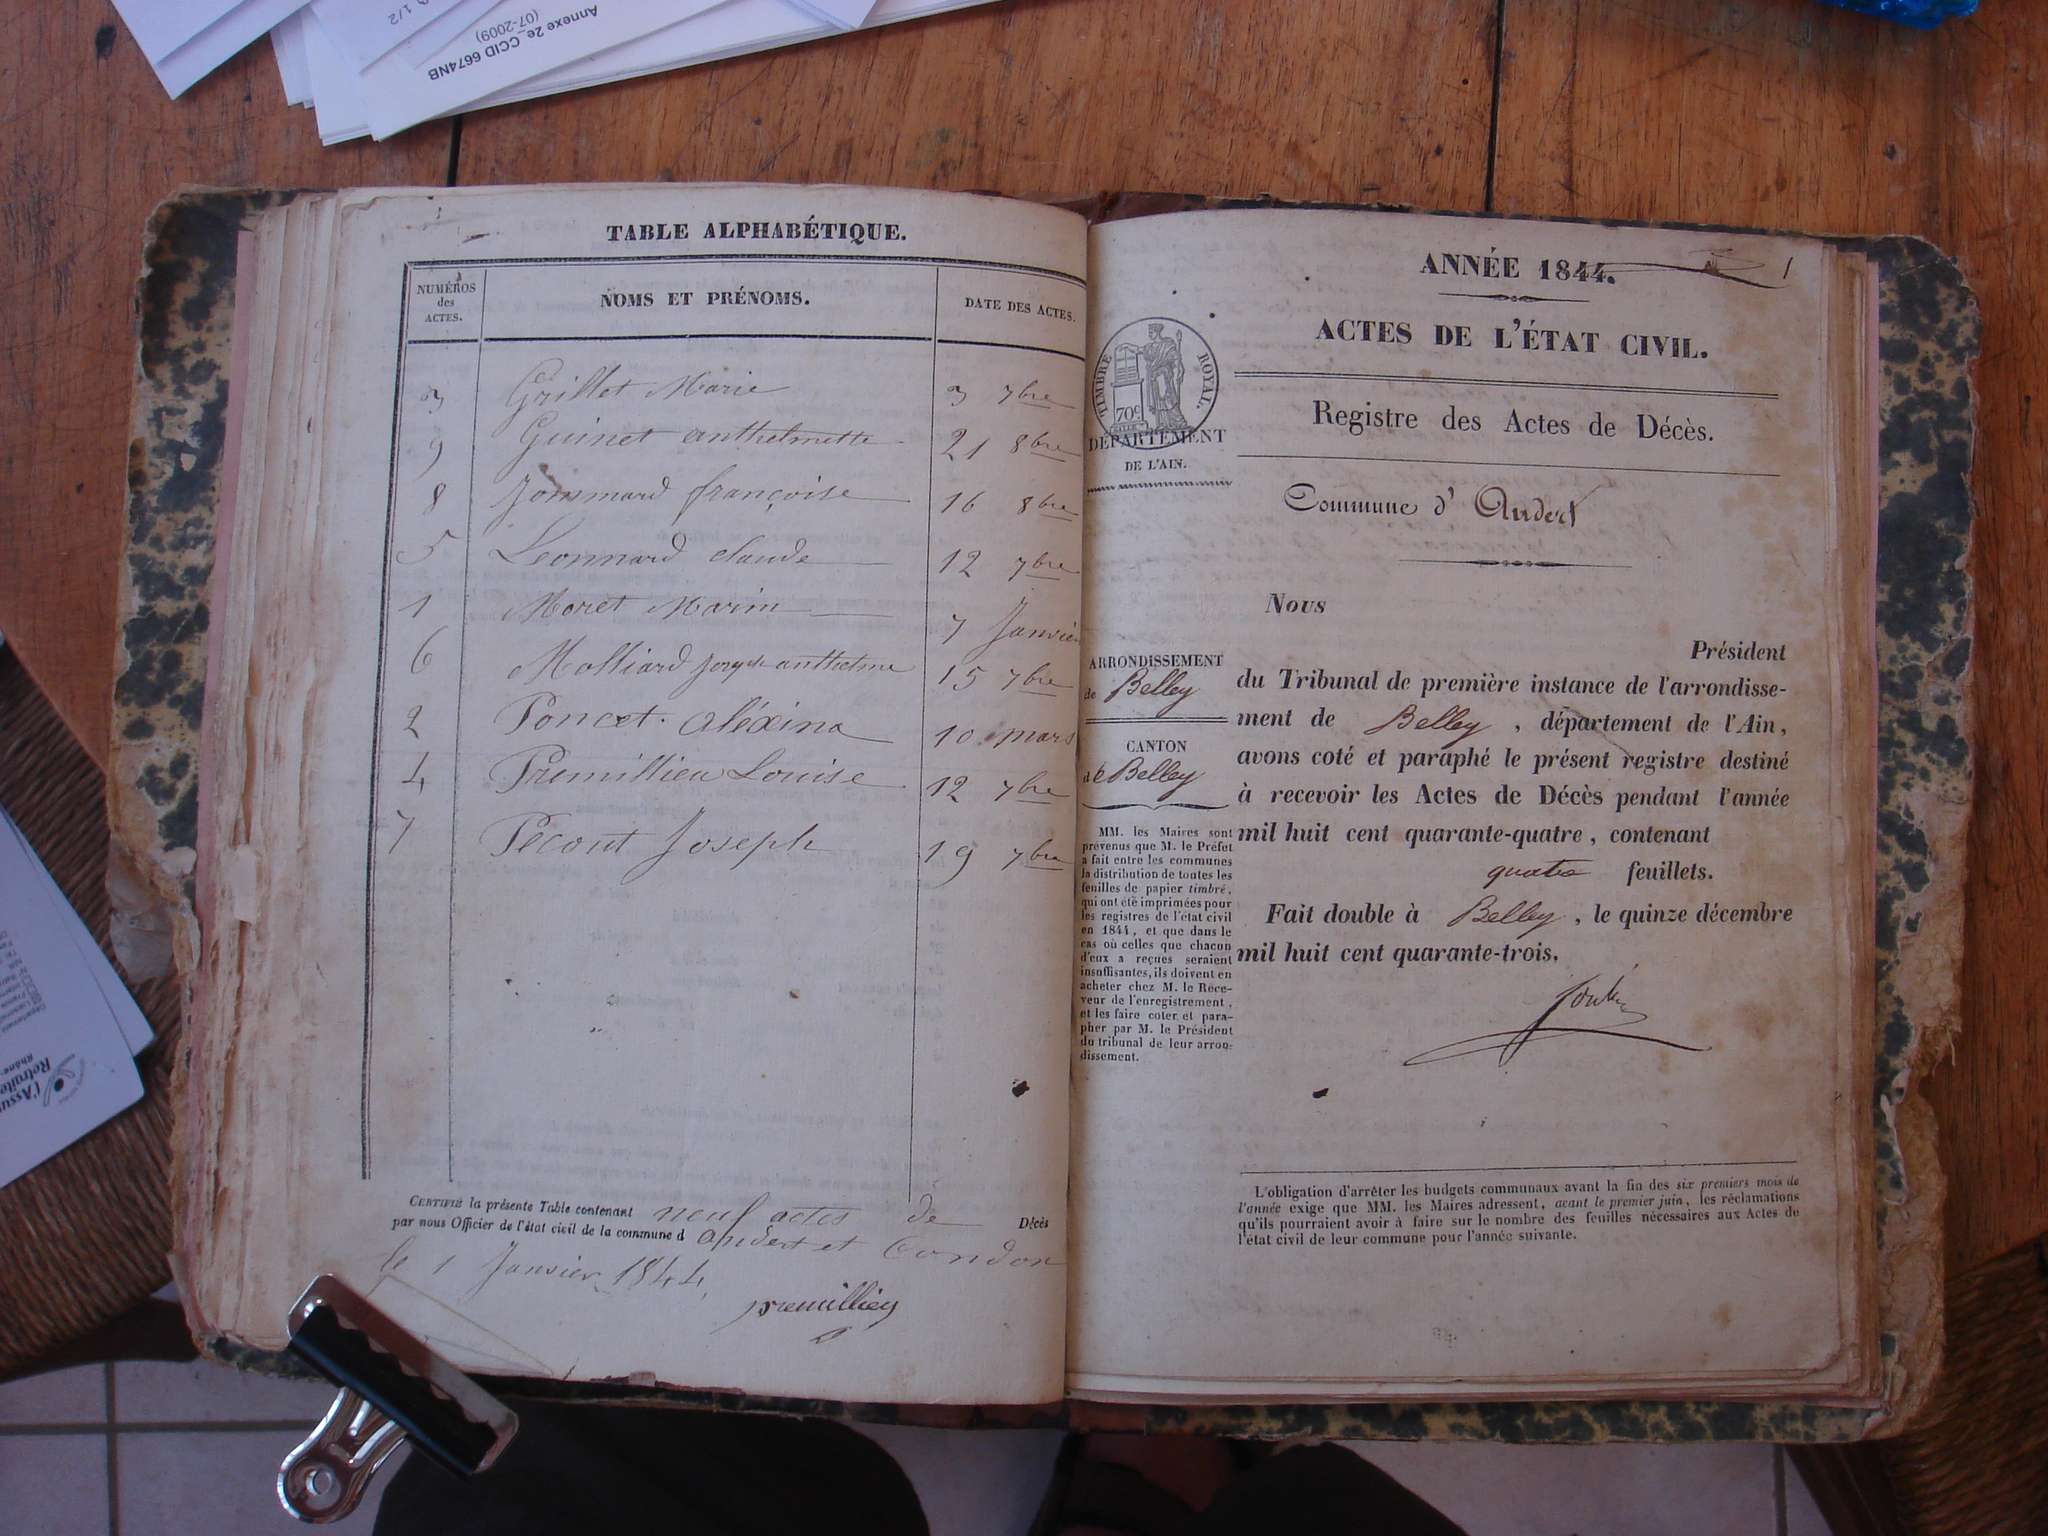 Annexe 2e_CCID 6674NB
(07-2009)
1/2
TABLE ALPHABÉTIQUE.
NUMÉROS des ACTES.
NOMS ET PRÉNOMS.
DATE DES ACTES.
3 Grillet Marie 3 7bre
9 Guinet anthelmette 21 8bre
8 Jommard françoise 16 8bre
5 Leonnard claude 12 7bre
1 Moret Marin 7 Janvier
6 Molliard joseph anthelme 15 7bre
2 Poncet Aléxina 10 mars
4 Premillieu Louise 12 7bre
7 Pecout Joseph 19 7bre
CERTIFIÉ la présente Table contenant neuf actes de Décès
par nous Officier de l'état civil de la commune d andert et Condon
le 1 Janvier 1844
premillieu
ANNÉE 1844.
1
ACTES DE L'ÉTAT CIVIL.
TIMBRE ROYAL.
70c
DÉPARTEMENT
DE L'AIN.
Registre des Actes de Décès.
Commune d' Andert
Nous
Président
du Tribunal de première instance de l'arrondisse-
ment de Belley, département de l'Ain,
avons coté et paraphé le présent registre destiné
à recevoir les Actes de Décès pendant l'année
mil huit cent quarante-quatre, contenant
quatre feuillets.
Fait double à Belley, le quinze décembre
mil huit cent quarante-trois.
ARRONDISSEMENT
de Belley
CANTON
de Belley
MM. les Maires sont
prévenus que M. le Préfet
a fait entre les communes
la distribution de toutes les
feuilles de papier timbré,
qui ont été imprimées pour
les registres de l'état civil
en 1844, et que dans le
cas où celles que chacun
d'eux a reçues seraient
insuffisantes, ils doivent en
acheter chez M. le Rece-
veur de l'enregistrement,
et les faire coter et para-
pher par M. le Président
du tribunal de leur arron-
dissement.
L'obligation d'arrêter les budgets communaux avant la fin des six premiers mois de
l'année exige que MM. les Maires adressent, avant le premier juin, les réclamations
qu'ils pourraient avoir à faire sur le nombre des feuilles nécessaires aux Actes de
l'état civil de leur commune pour l'année suivante.
l'Assu
Retraite
Rhône-